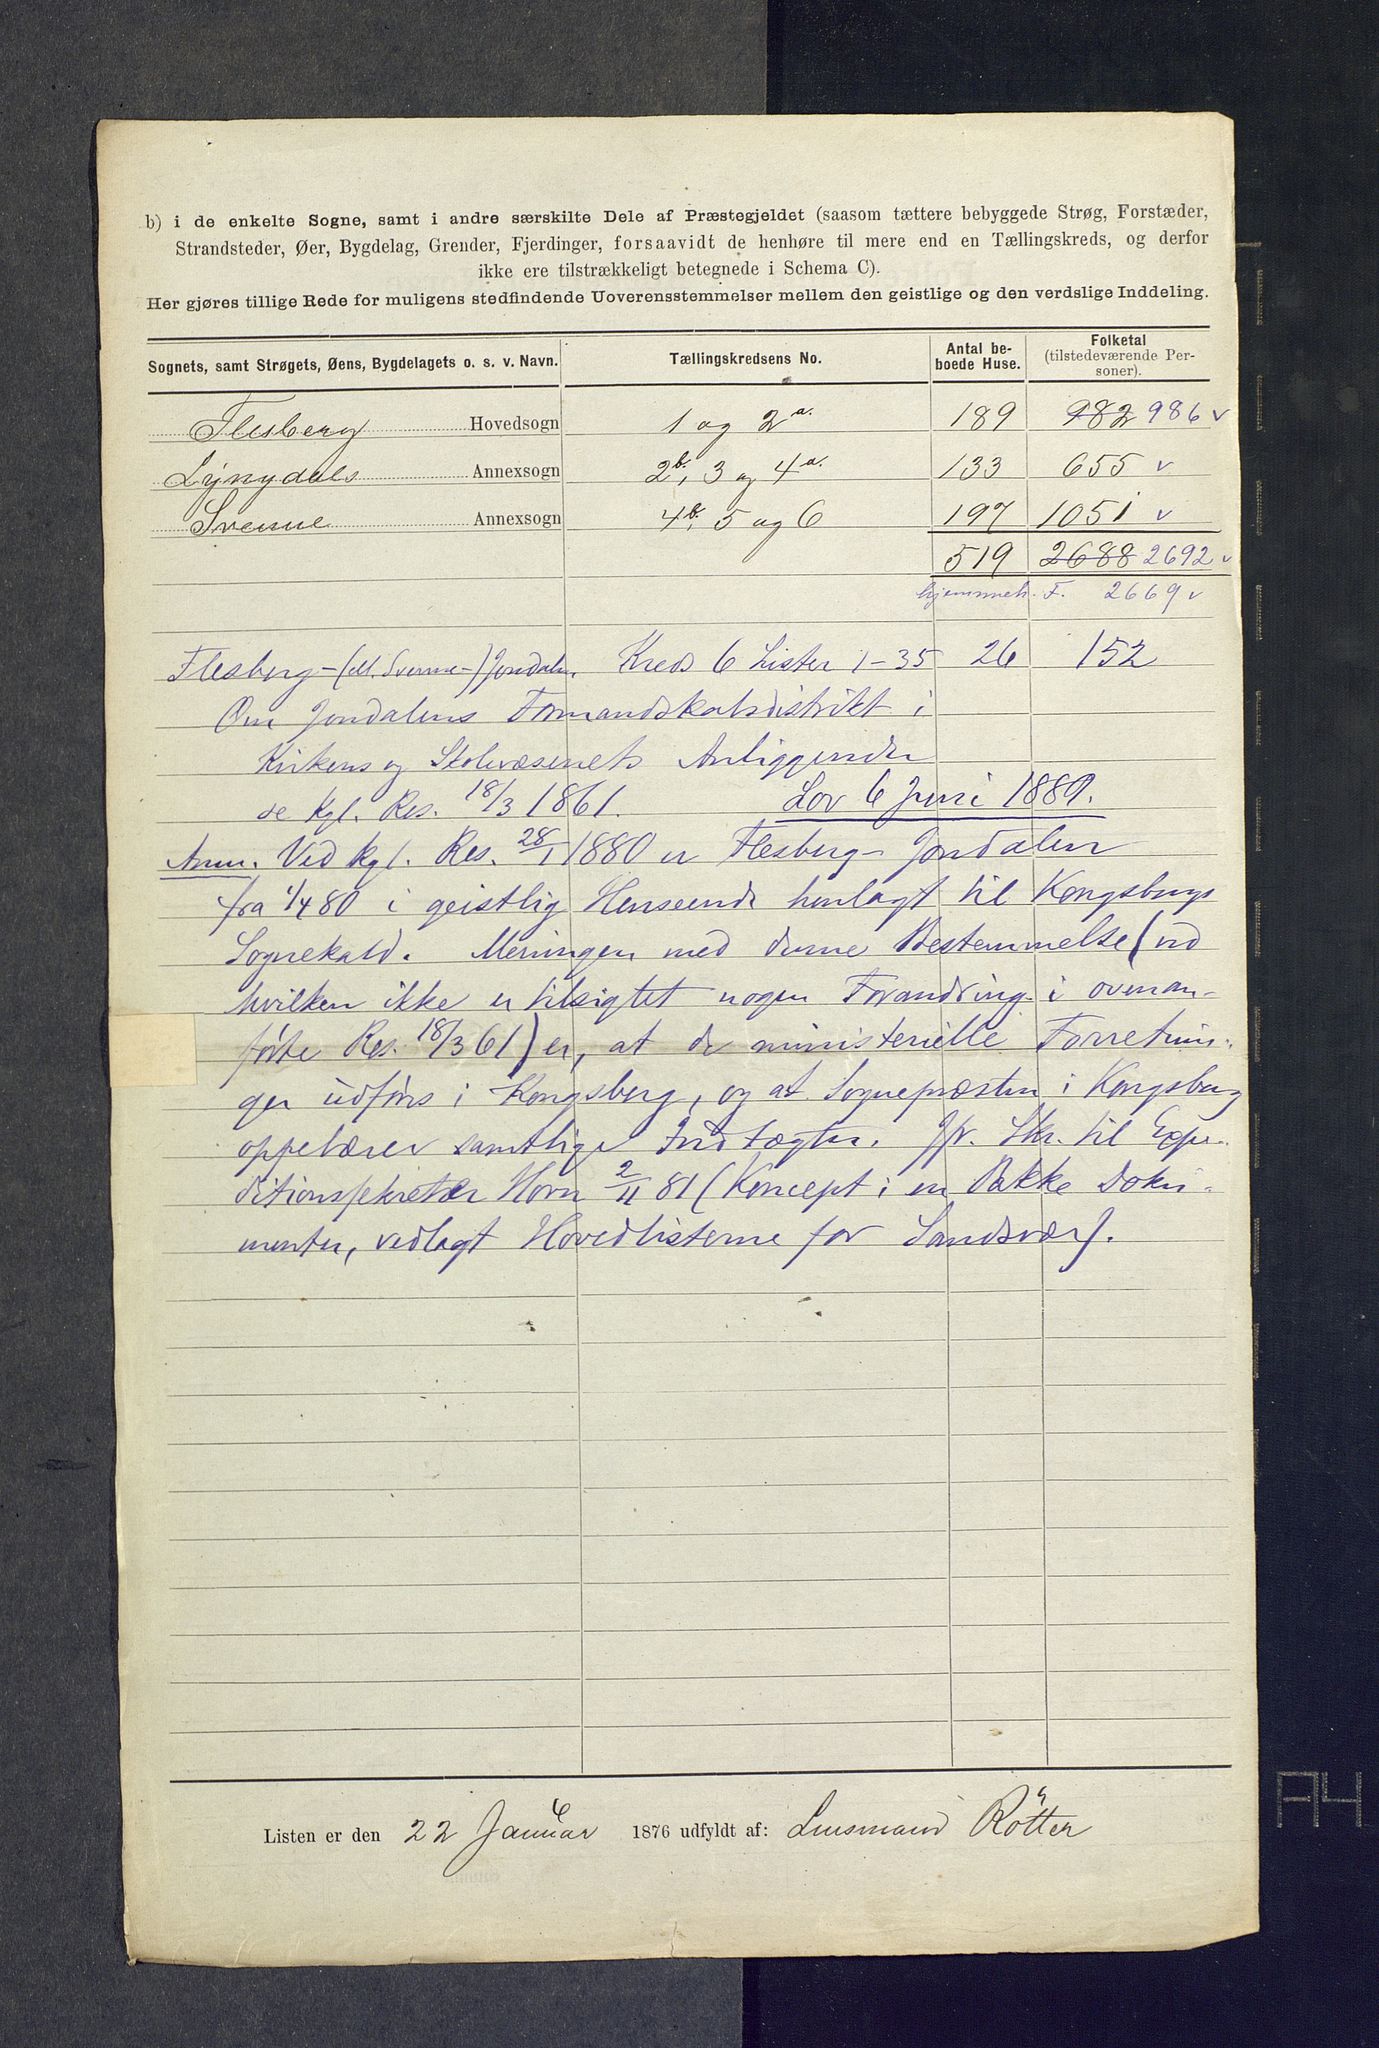 b) i de enkelte Sogne, samt i andre særskilte Dele af Præstegjeldet (saasom tættere bebyggede Strøg, Forstæder,
Strandsteder, Øer, Bygdelag, Grender, Fjerdinger, forsaavidt de henhøre til mere end en Tællingskreds, og derfor
ikke ere tilstrækkeligt betegnede i Schema C).
Her gjøres tillige Rede for muligens stedfindende Uoverensstemmelser mellem den geistlige og den verdslige Inddeling.
Sognets, samt Strøgets, Øens, Bygdelagets o. s. v. Navn. Tællingskredsens No. Antal beboede Huse. Folketal (tilstedeværende Personer).
Flesberg Hovedsogn 1 og 2a. 189 982 986 v
Lyngdals Annexsogn 2b, 3 og 4a. 133 655 v
Svenne Annexsogn 4b, 5 og 6 197 1051 v
519 2688 2692 v
hjemmeh. F. 2669 v
Flesberg-(ell. Svenne-) Jondalen. Kreds 6 Lister 1-35 26 152
Om Jondalens Formandskabsdistrikt i
Kirkens og Skolevæsenets Anliggender
se kgl. Res. 18/3 1861. Lov 6 Juni 1889.
Anm. Ved kgl. Res. 28/1 1880 er Flesberg-Jondalen
fra 1/4 80 i geistlig Henseende henlagt til Kongsbergs
Sognekald. Meningen med denne Bestemmelse (ved
hvilken ikke er tilsigtet nogen Forandring i ovenan-
førte Res. 18/3 61) er, at de ministerielle Forretnin-
ger udføres i Kongsberg, og at Sognepræsten i Kongsberg
oppebærer samtlige Indtægter. Jfr. Skr. til Expe-
ditionssekretær Horn 2/11 81 (Koncept i en Pakke Doku-
menter, vedlagt Hovedlisterne for Sandsvær).
Listen er den 22 Januar 1876 udfyldt af: Lensmand Røtter
A4